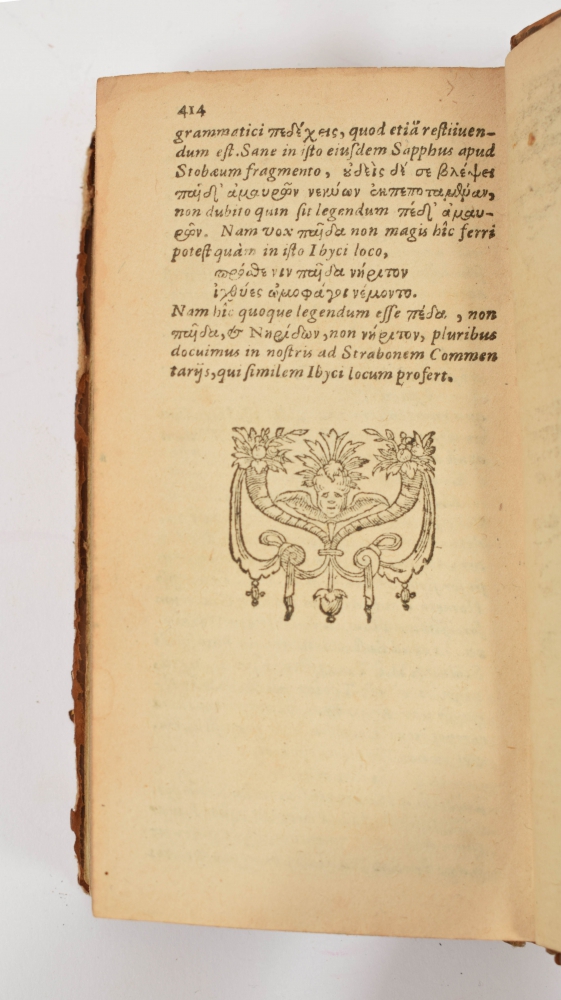 414
grammatici πεδέχεις, quod etiā restiiuen-
dum est. Sane in isto eiusdem Sapphus apud
Stobæum fragmento, ȣ̓δεὶς δέ σε βλέψει
παῖδ' ἀμαυρῶν νεκύων ἐκπεποταμθμαν,
non dubito quin sit legendum πέδ' ἀμαυ-
ρῶν. Nam vox παῖδα non magis hîc ferri
potest quàm in isto Ibyci loco,
πρόθε νιν παῖδα νήριτον
ἰχθύες ὠμοφάγοι νέμοντο.
Nam hîc quoque legendum esse πέδα, non
παῖδα, & Νηρίδων, non νήριτον, pluribus
docuimus in nostris ad Strabonem Commen
tarijs, qui similem Ibyci locum profert.